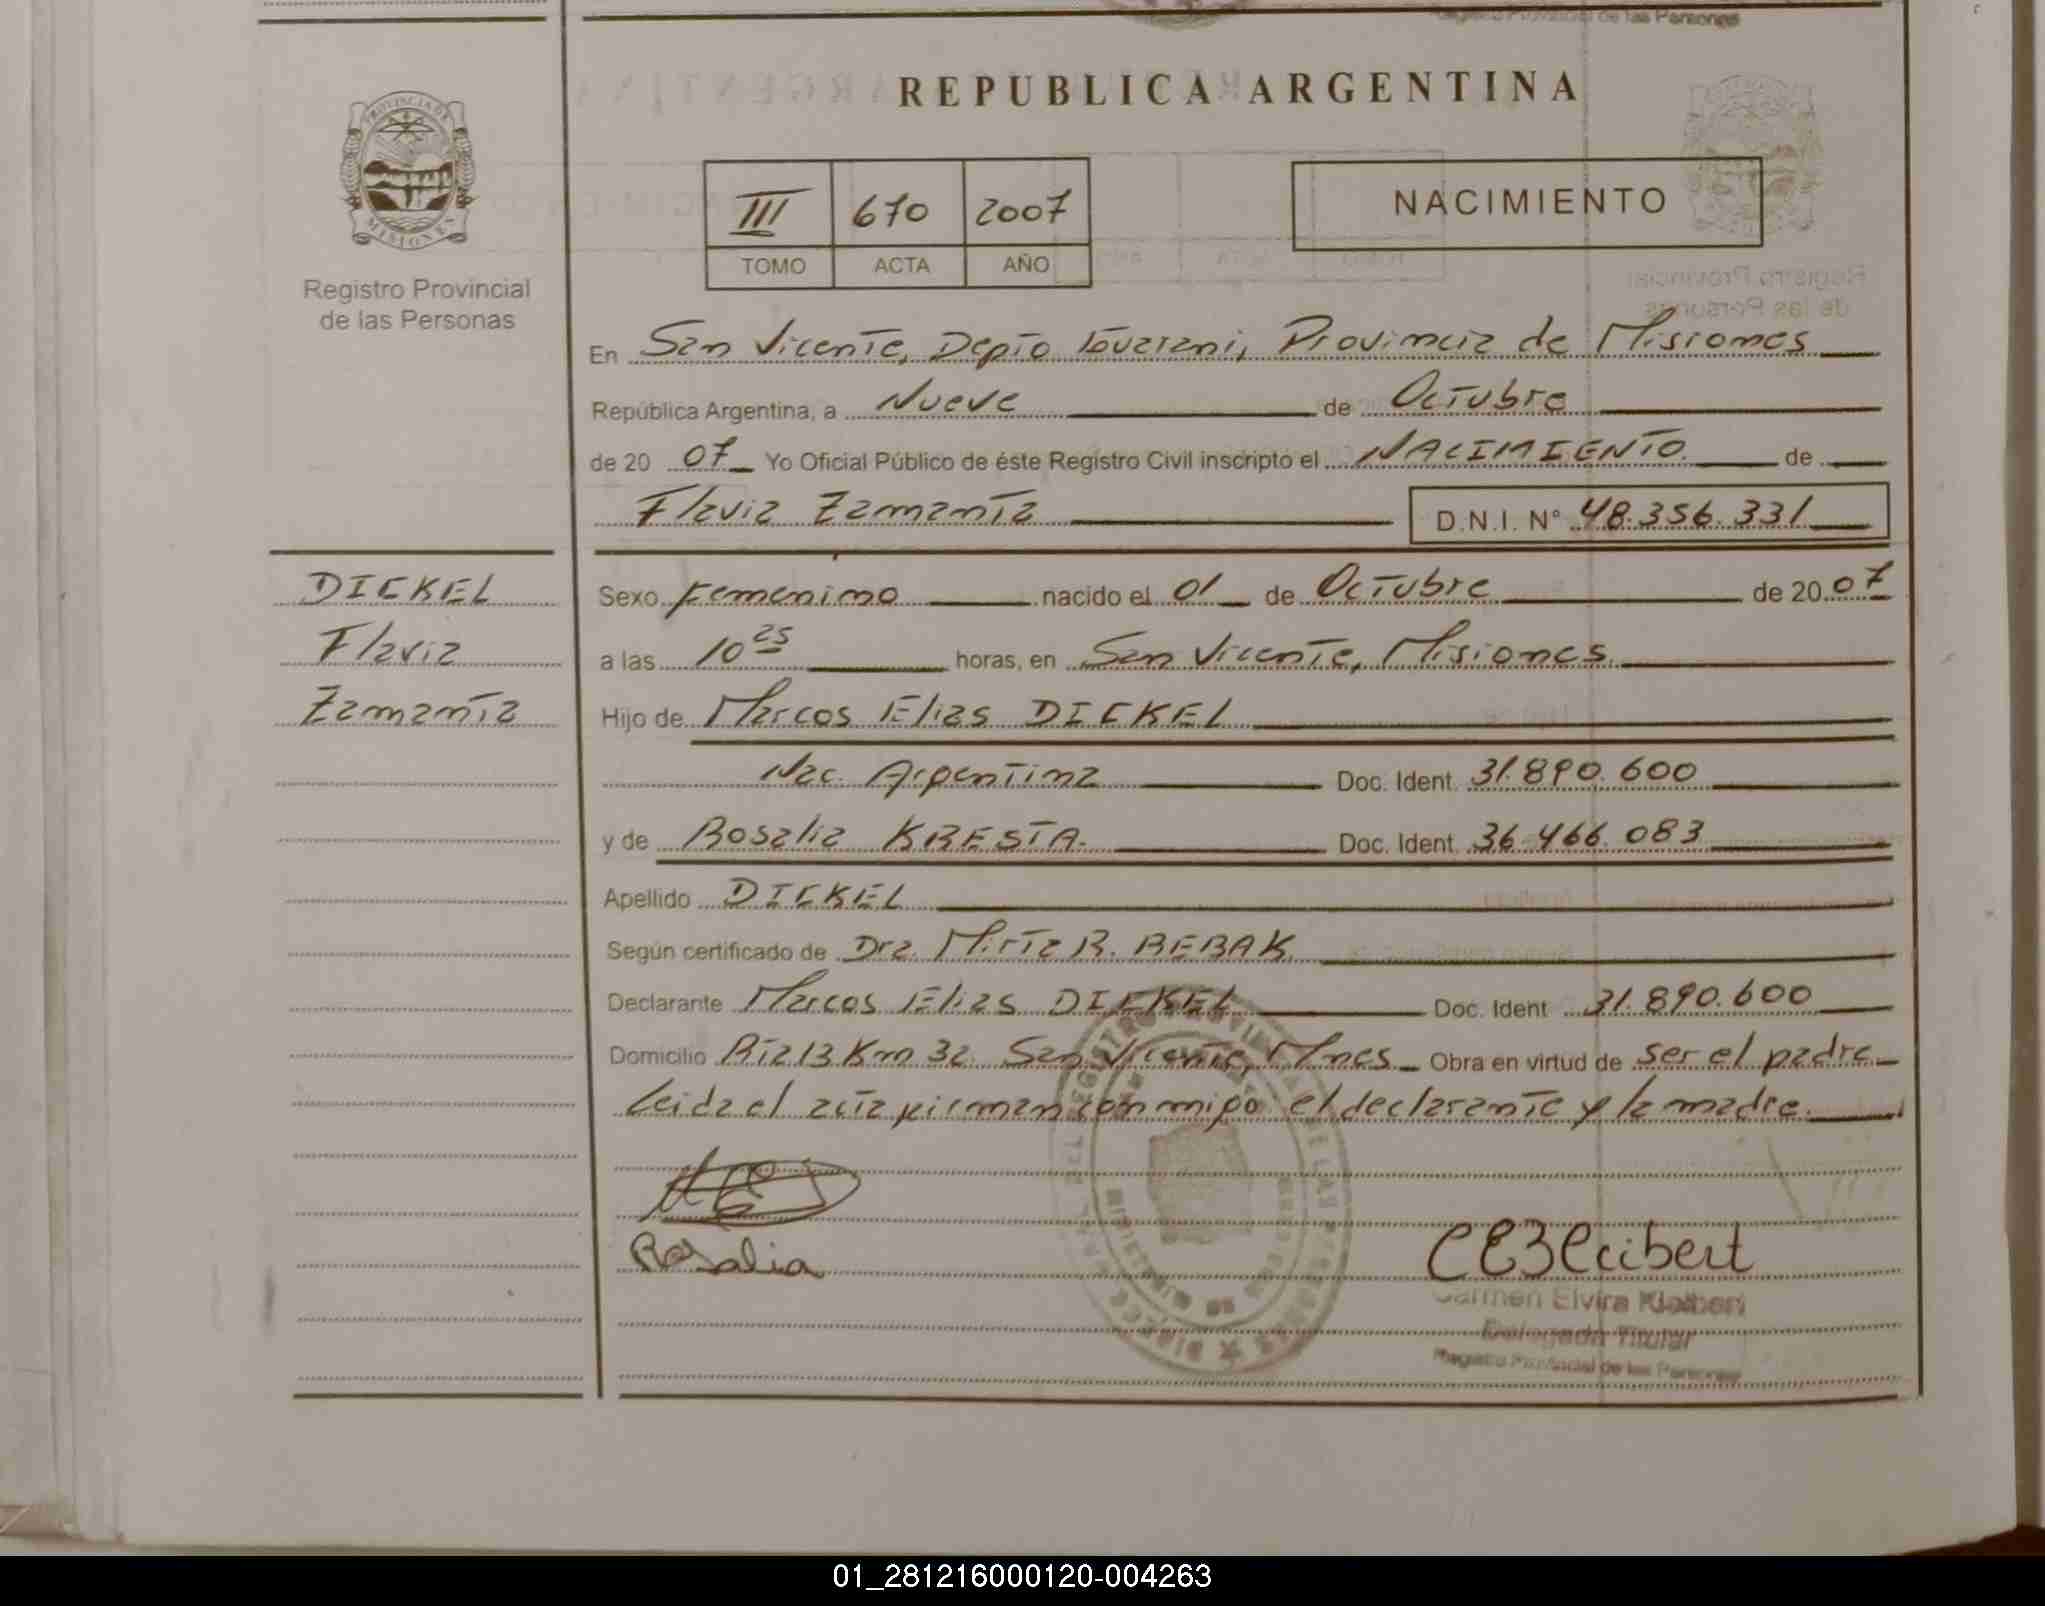 Registro Provincial de las Personas
REPUBLICA ARGENTINA
PROVINCIA DE
MISIONES
Registro Provincial
de las Personas
III 670 2007
TOMO ACTA AÑO
NACIMIENTO
En San Vicente, Depto Guarani, Provincia de Misiones
República Argentina, a Nueve de Octubre
de 20 07 Yo Oficial Público de éste Registro Civil inscripto el NACIMIENTO de
Flavia Zamanta D.N.I. N° 48.356.331
DICKEL
Flavia
Zamanta
Sexo femenino nacido el 01 de Octubre de 20 07
a las 10 25 horas, en San Vicente, Misiones
Hijo de Marcos Elias DICKEL
Nac. Argentina Doc. Ident. 31.890.600
y de Rosalia KRESTA. Doc. Ident. 36.466.083
Apellido DICKEL
Según certificado de Dra. Mirta R. BEBAK
Declarante Marcos Elias DICKEL Doc. Ident 31.890.600
Domicilio Rta 13 Km 32. San Vicente, Mnes Obra en virtud de ser el padre
Leida el acta firman conmigo el declarante y la madre.
Rosalia
Carmen Elvira
Delegada Titular
Registro Provincial de las Personas
01_281216000120-004263